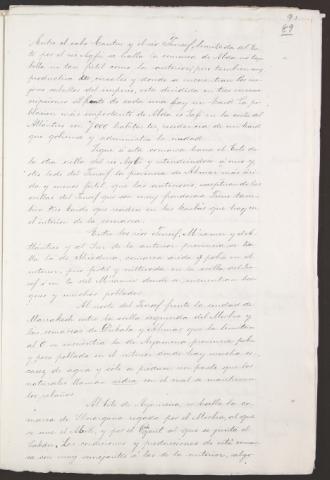 91
69
Entre el cabo Cantin y el rio Tensif, limitada del Es-
te por el rio se halla la comarca de Abda no tan
bella ni tan fértil como la anterior, pero tambien muy
productiva de cereales y donde se encuentran los me-
jores caballos del imperio, está dividida en tres
al frente de cada una hay un kaid. La po-
blacion mas importante de Abda es Safi en la costa del
Atlántico con 7.000 habitantes, residencia de un kaid
que gobierna y administra la ciudad.
Sigue á esta comarca hacia el Este de
la otra orilla del rio y estendiendose á
dio lado del Tensif la provincia de Ahmar mas ári-
da y menos fértil que las anteriores, excepcion de las
orillas del Tensif que son muy frondosas. Tiene tam-
bien tres kaids que residen en las que hay en
el interior de la comarca.
Entre los rios Tensif, y el At-
lántico y al Sur de la anterior provincia se ha-
lla la de comarca árida y pobre en el
interior, pero fértil y cultivada en la orilla del Ten-
sif y en la del donde se encuentran bos-
ques y muchos poblados.
Al norte del Tensif frente la ciudad de
Marrakech entre la orilla izquierda del Morbea y
las comarcas de Dukala y Ahmar que la limitan
al O se encuentra la de provincia pobre
y poco poblada en el interior donde hay mucha es-
casez de agua y solo se produce un pasto que los
naturales llaman con el cual se mantienen
los rebaños.
Al Este de se halla la co-
marca de regada por el Morbea, al que
se une el y por el que se junta al
Las condiciones y producciones de esta comar-
ca son muy semejantes á las de la anterior, algo